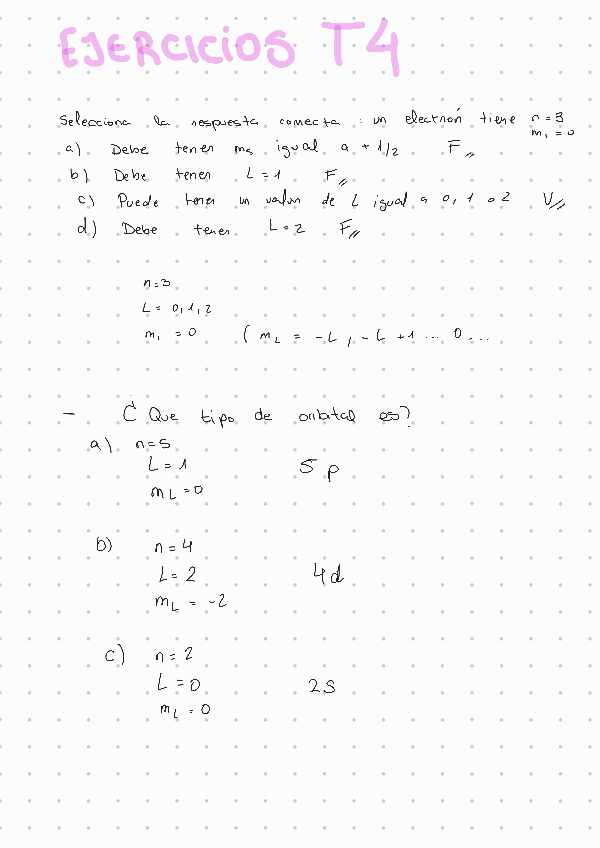 EJERCICIOS T4
Selecciona la respuesta correcta : un electrón tiene n = 3
mₗ = 0
a) Debe tener ms igual a + 1/2 F
b) Debe tener L = 1 F
c) Puede tener un valor de L igual a 0, 1 o 2 V
d) Debe tener L = 2 F
n = 3
L = 0, 1, 2
mₗ = 0 ( mL = -L, -L +1 ... 0 ...
- ¿ Que tipo de orbital es?
a) n = 5
L = 1 5 p
mL = 0
b) n = 4
L = 2 4d
mL = -2
c) n = 2
L = 0 2S
mL = 0